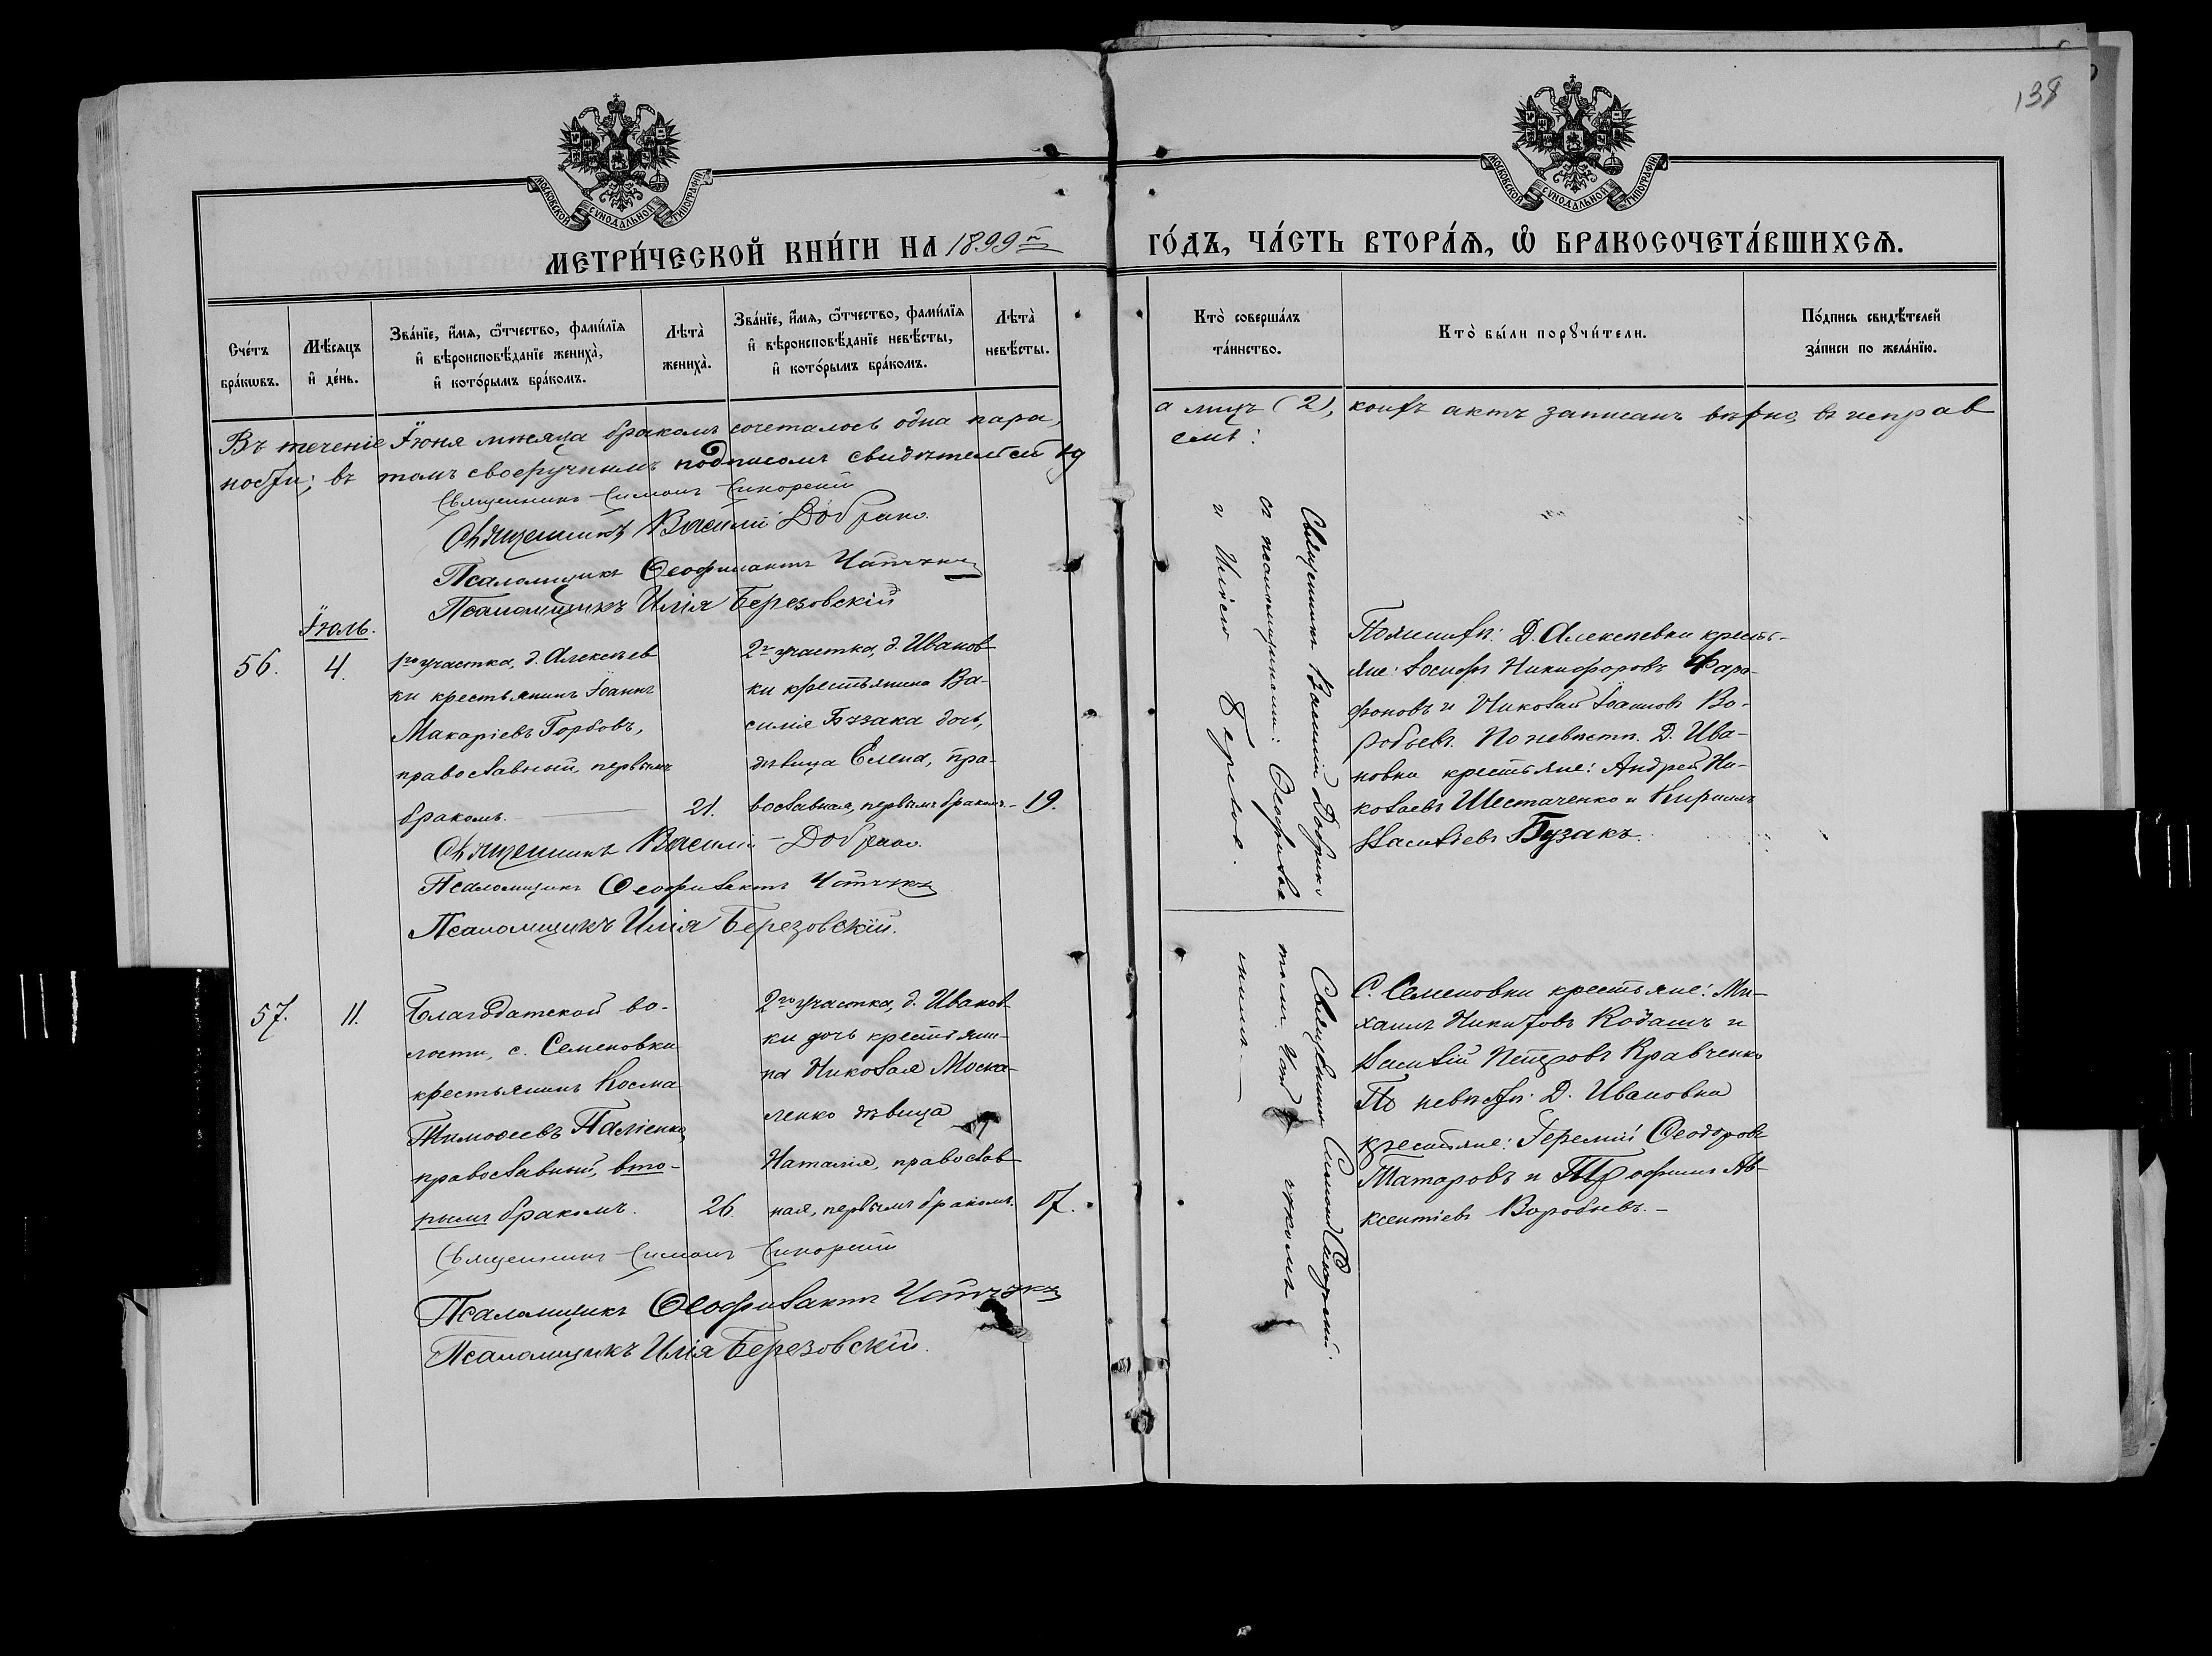 138
МОСКОВСКОЙ СУНОДАЛЬНОЙ ТИПОГРАФІИ
МОСКОВСКОЙ СУНОДАЛЬНОЙ ТИПОГРАФІИ
МЕТРИ́ЧЕСКОЙ КНИ́ГИ НА 1899 й
ГО́ДЪ, ЧА́СТЬ ВТОРА́Ѧ, Ѡ БРАКОСОЧЕТА́ВШИХСѦ.
Сче́тъ бра́кѡвъ.
Мѣ́сѧцъ и҆ де́нь.
Зва́нїе, и҆́мѧ, ѻ҆́тчество, фами́лїѧ
и҆ вѣроисповѣ́данїе жениха̀,
и҆ кото́рымъ бра́комъ.
Лѣта̀ жениха̀.
Зва́нїе, и҆́мѧ, ѻ҆́тчество, фами́лїѧ
и҆ вѣроисповѣ́данїе невѣ́сты,
и҆ кото́рымъ бра́комъ.
Лѣта̀ невѣ́сты.
Кто̀ соверша́лъ та́инство.
Кто̀ бы́ли порꙋчи́тели.
По́дпись свидѣ́телей за́писи по жела́нїю.
Въ теченіе Іюня мѣсяца бракомъ сочеталось одна пара,
а лицъ (2), коихъ актъ записанъ вѣрно, въ исправ
ности; въ томъ своеручнымъ подписомъ свидѣтельст
уемъ:
Священникъ Симонъ
Священникъ Василій
Псаломщикъ Ѳеофилактъ
Псаломщикъ Илія Березовскій
Іюль.
56.
4.
1го участка, д. Алексѣев
ки крестьянинъ Іоаннъ
Макаріевъ Горбовъ,
православный, первымъ
бракомъ.
21.
2го участка, д. Иванов
ки крестьянина Ва-
силія Бузака дочь,
дѣвица Елена, пра-
вославная, первымъ бракомъ.-
19.
Священникъ Василій
съ псаломщиками: Ѳеофилак
и Иліею
По женихѣ: Д. Алексѣевки кресть-
яне: Іосифъ Никифоровъ
и Николай Іоанновъ Во-
робьевъ. По невѣстѣ. Д. Ива-
новки крестьяне: Андрей Ни-
колаевъ Шестаченко и Кириллъ
Васильевъ Бузакъ.
Священникъ Василій
Псаломщикъ Ѳеофилактъ
Псаломщикъ Илія Березовскій.
57.
11.
Благодатской во-
лости, с. Семеновки
крестьянинъ Косма
Тимоѳеевъ Паліенко
православный, вто-
рымъ бракомъ.
26.
2го участка, д. Иванов
ки дочь крестьяни-
на Николая Моска-
ленко дѣвица
Наталія, православ
ная, первымъ бракомъ.
17.
Священникъ Симонъ
С. Семеновки крестьяне: Ми-
хаилъ Никитовъ Кодашъ и
Василій Петровъ Кравченко
По невѣстѣ: Д. Ивановки
крестьяне: Іеремій Ѳеодоровъ
Матаровъ и Трофимъ Ав-
ксентіевъ Воробьевъ.-
Священникъ Симонъ
Псаломщикъ Ѳеофилактъ
Псаломщикъ Илія Березовскій.